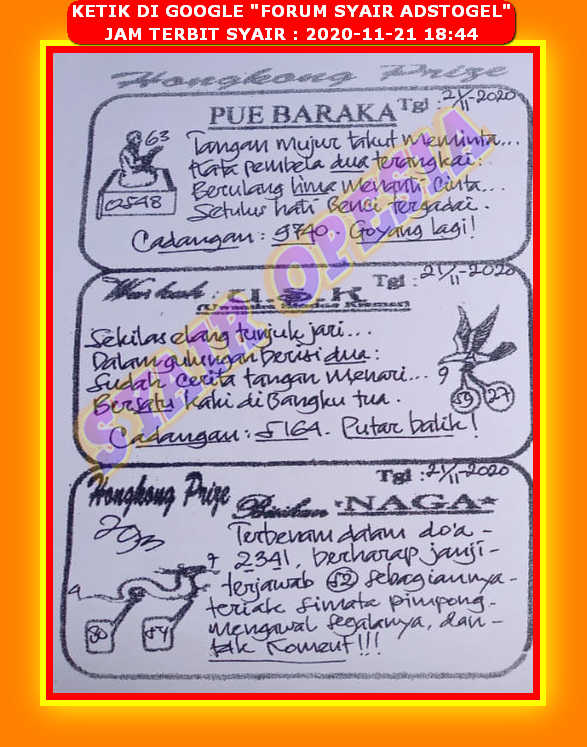 KETIK DI GOOGLE "FORUM SYAIR ADSTOGEL"
JAM TERBIT SYAIR : 2020-11-21 18:44
Hongkong Prize
PUE BARAKA Tgl : 21/11-2020
63
Tangan mujur takut meminta...
Kata pembela dua terangkai.
Berulang lima menanti cinta...
Setulus hati Benci tergadai.
02548
Cadangan : 9740. Goyang lagi!
Tgl : 21/11-2020
Sekilas elang tunjuk jari...
Dalam gulungan berisi dua :
Sudah cerita tangan menari...
9
Bersatu kaki di Bangku tua.
59 27
Cadangan : 5164. Putar balik!
Tgl : 21/11-2020
Hongkong Prize
NAGA
Terbenam dalam do'a -
9 2341, berharap janji -
terjawab 52 sebagiannya -
4
teriak simata pimpong -
mengawal segalanya, dan -
80 54
tak Koment!!!
SYAIR OPESIA